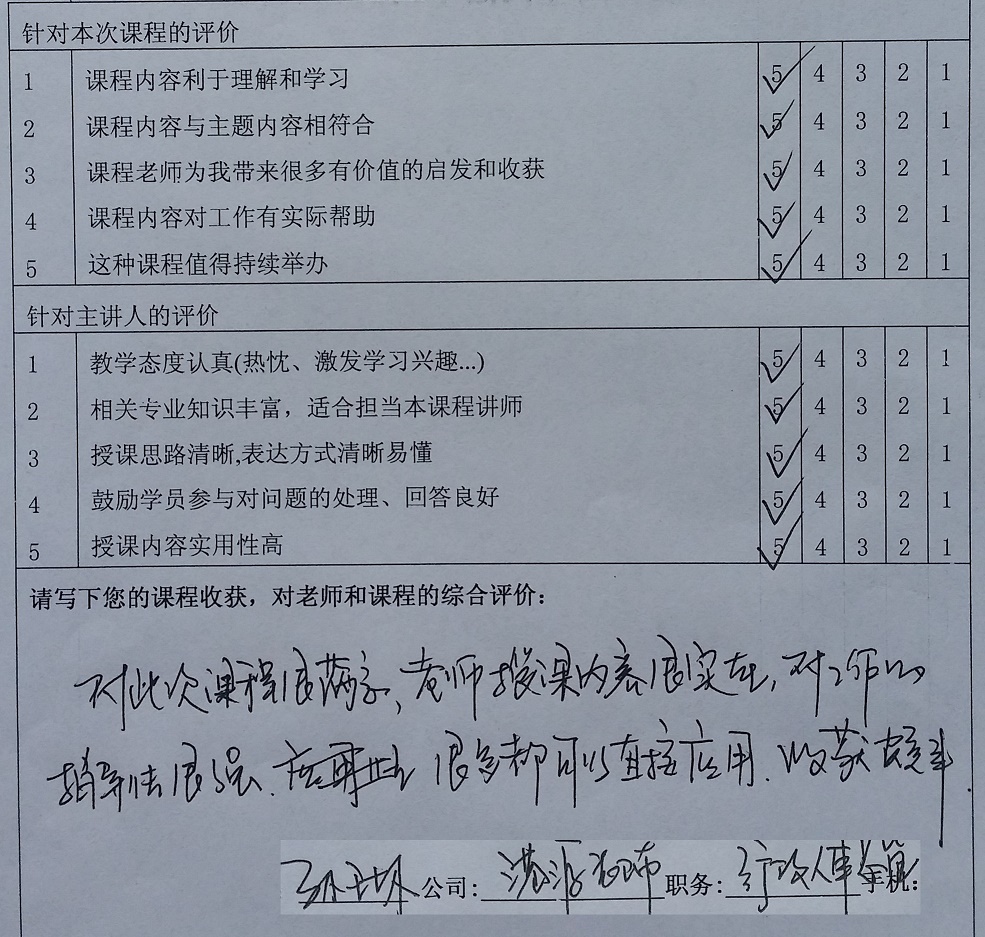 针对本次课程的评价
1 课程内容利于理解和学习 5 4 3 2 1
2 课程内容与主题内容相符合 5 4 3 2 1
3 课程老师为我带来很多有价值的启发和收获 5 4 3 2 1
4 课程内容对工作有实际帮助 5 4 3 2 1
5 这种课程值得持续举办 5 4 3 2 1
针对主讲人的评价
1 教学态度认真(热忱、激发学习兴趣...) 5 4 3 2 1
2 相关专业知识丰富，适合担当本课程讲师 5 4 3 2 1
3 授课思路清晰,表达方式清晰易懂 5 4 3 2 1
4 鼓励学员参与对问题的处理、回答良好 5 4 3 2 1
5 授课内容实用性高 5 4 3 2 1
请写下您的课程收获，对老师和课程的综合评价：
对此次课程很满意,老师授课内容很实在,对工作的
指导性很强.很多都可以直接应用.收获
公司: 职务: 行政人事 手机: